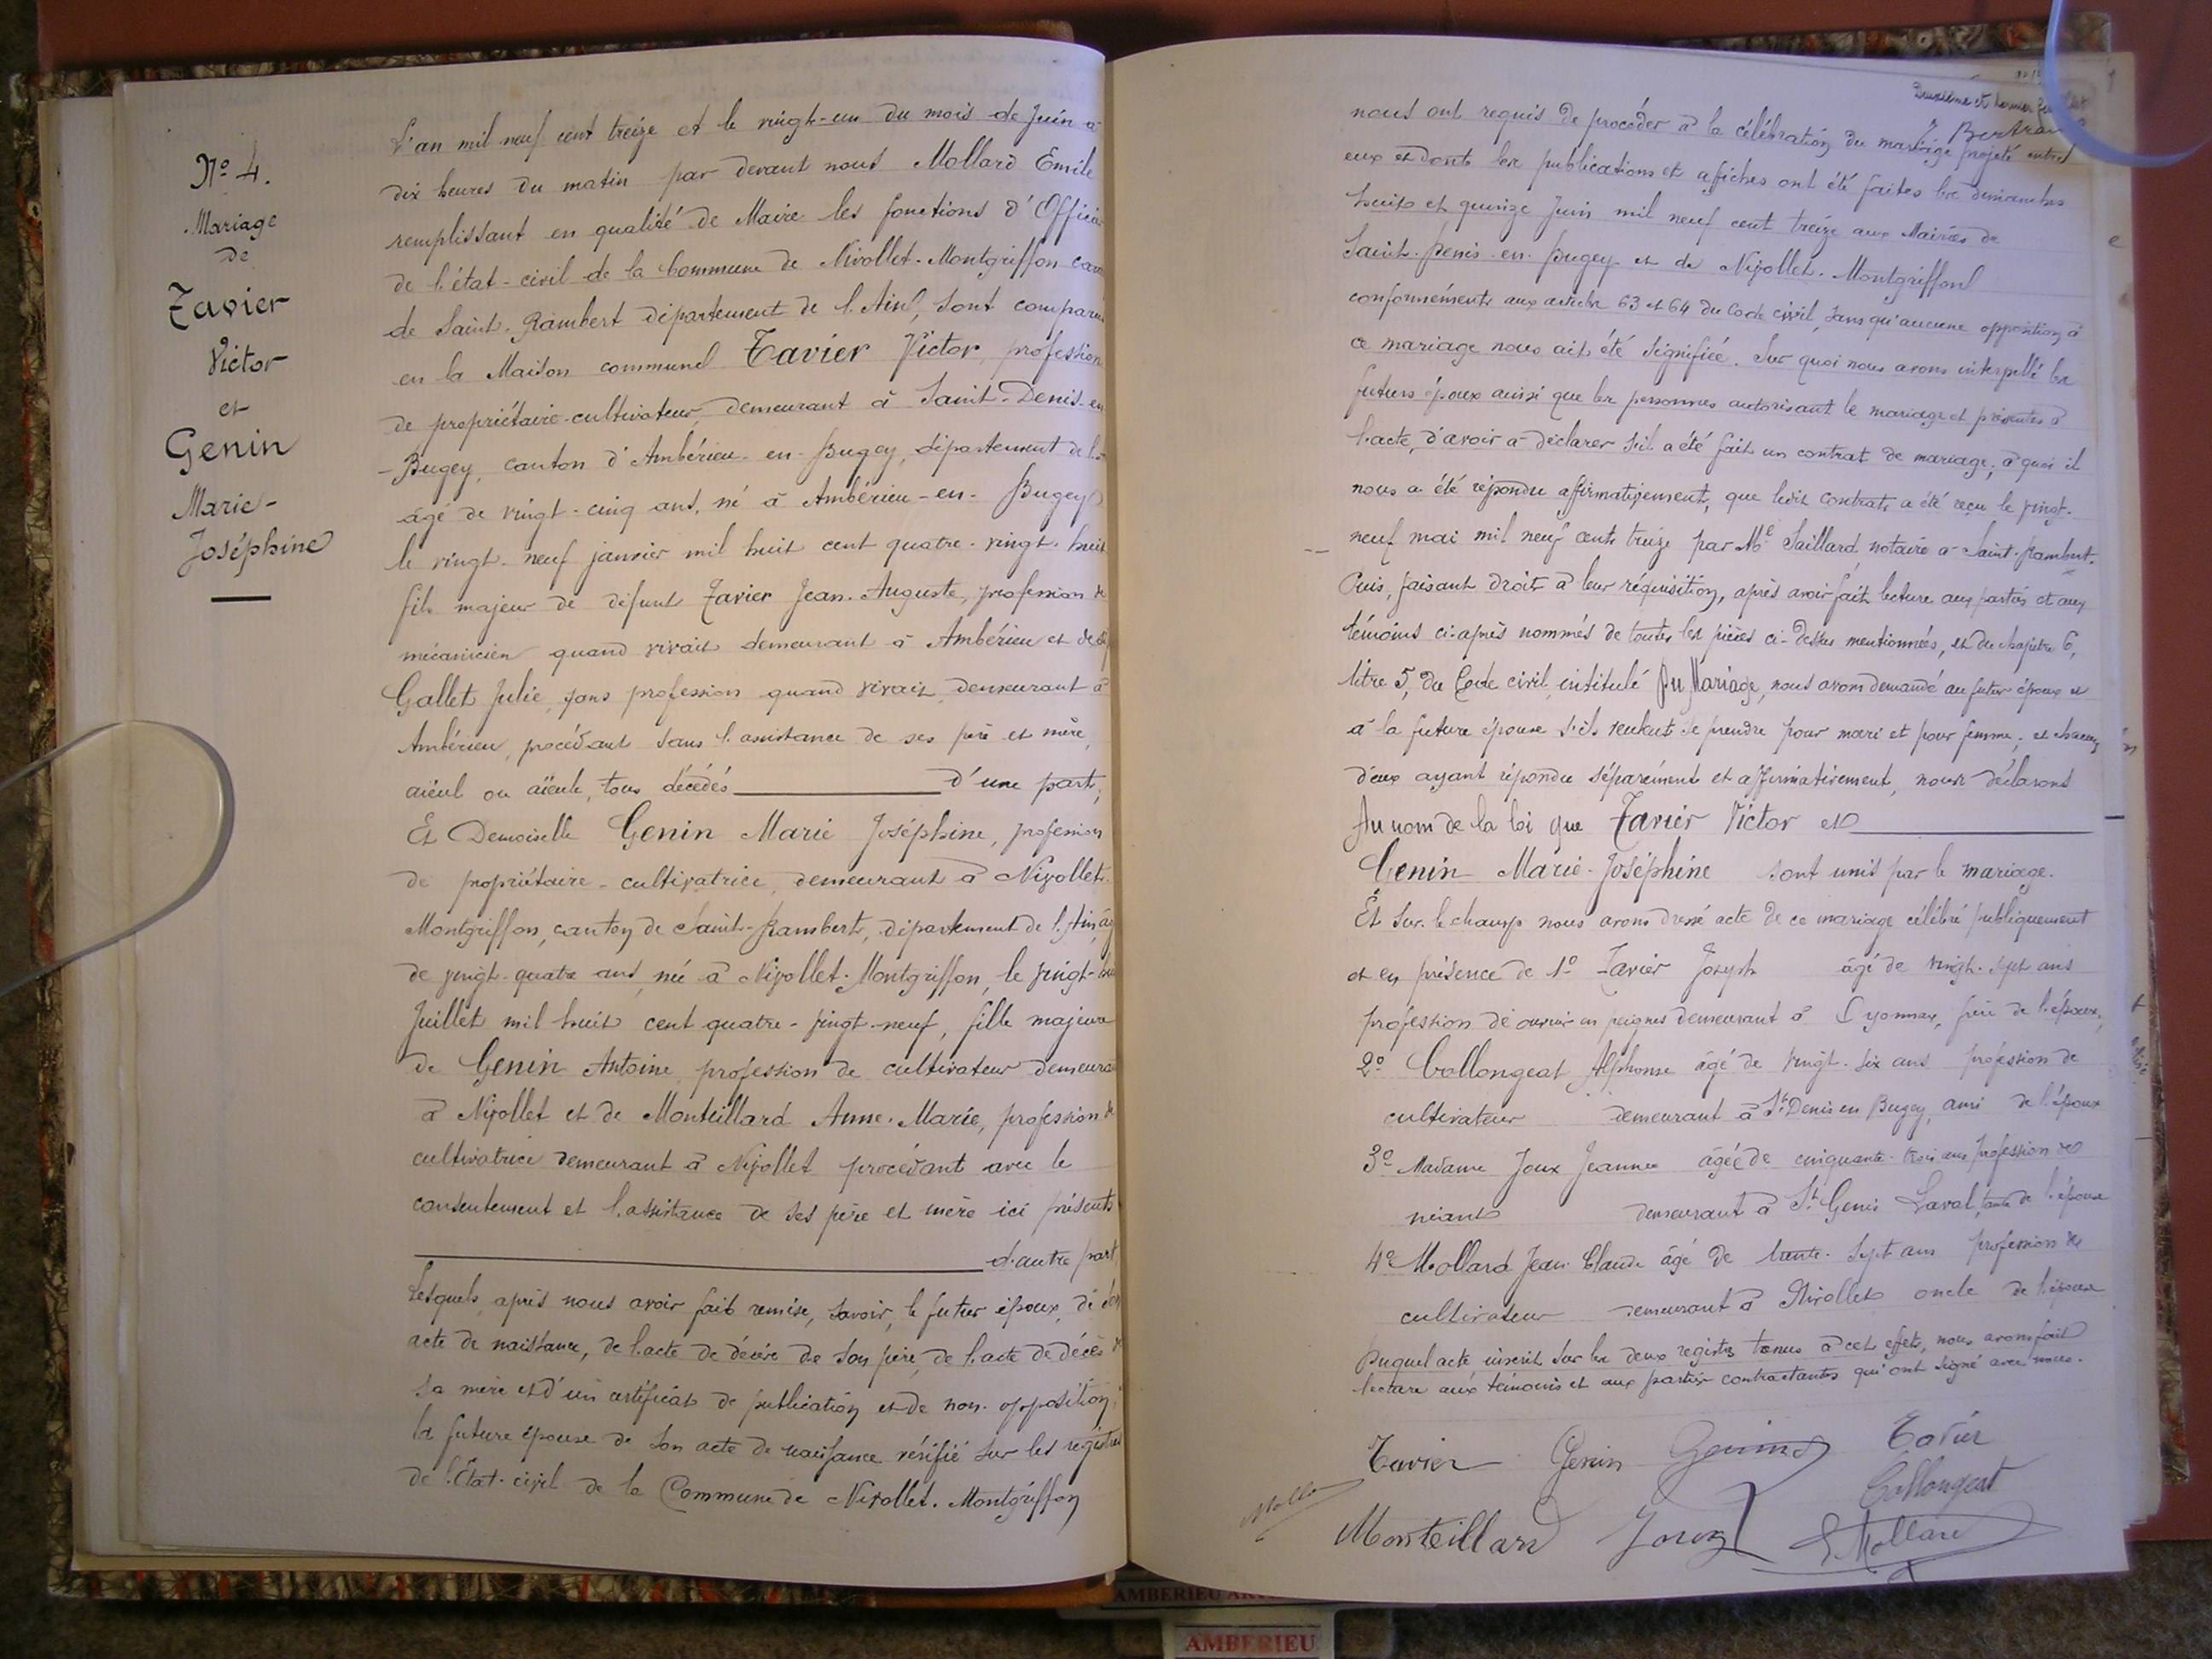 Nº 4.
Mariage
de
Tavier
Victor
et
Genin
Marie-
Joséphine
L'an mil neuf cent treize et le vingt-un du mois de Juin à
dix heures du matin par devant nous Mollard Emile
remplissant en qualité de Maire les fonctions d'Officier
de l'état-civil de la Commune de Nivollet-Montgriffon
de Saint-Rambert département de l'Ain, sont comparu
en la Maison commune Tavier Victor, profession
de propriétaire-cultivateur, demeurant à Saint-Denis-en
-Bugey, canton d'Ambérieu-en-Bugey, département de
âgé de vingt-cinq ans, né à Ambérieu-en-Bugey
le vingt-neuf janvier mil huit cent quatre-vingt-huit
fils majeur de défunt Tavier Jean-Auguste, profession de
mécanicien quand vivait demeurant à Ambérieu et de
Gallet Julie, sans profession quand vivait, demeurant à
Ambérieu, procédant sans l'assistance de ses père et mère,
aïeul ou aïeule, tous décédés d'une part,
Et Demoiselle Genin Marie Joséphine, profession
de propriétaire-cultivatrice, demeurant à Nivollet-
Montgriffon, canton de Saint-Rambert, département de l'Ain,
de vingt-quatre ans, née à Nivollet-Montgriffon, le vingt-
Juillet mil huit cent quatre-vingt-neuf, fille majeure
de Genin Antoine, profession de cultivateur demeura
à Nivollet et de Monteillard Anne-Marie, profession de
cultivatrice demeurant à Nivollet procédant avec le
consentement et l'assistance de ses père et mère ici présents
d'autre part
Lesquels, après nous avoir fait remise, savoir, le futur époux, de son
acte de naissance, de l'acte de décès de son père, de l'acte de décès de
sa mère et d'un certificat de publication et de non-opposition,
la future épouse de son acte de naissance vérifié sur les registres
de l'État-civil de la Commune de Nivollet-Montgriffon
Deuxième et dernier
Bertrand
nous ont requis de procéder à la célébration du mariage projeté entre
eux et dont les publications et affiches ont été faites les dimanches
huit et quinze Juin mil neuf cent treize aux Mairies de
Saint-Denis-en-Bugey et de Nivollet-Montgriffon
conformément aux articles 63 et 64 du Code civil, sans qu'aucune opposition à
ce mariage nous ait été signifiée. Sur quoi nous avons interpellé les
futurs époux ainsi que les personnes autorisant le mariage et présentes à
l'acte, d'avoir à déclarer s'il a été fait un contrat de mariage, à quoi il
nous a été répondu affirmativement, que ledit contrat a été reçu le vingt-
neuf mai mil neuf cent treize par Me Saillard, notaire à Saint-Rambert.
Puis, faisant droit à leur réquisition, après avoir fait lecture aux parties et aux
témoins ci-après nommés de toutes les pièces ci-dessus mentionnées, et du chapitre 6,
titre 5, du Code civil, intitulé Du Mariage, nous avons demandé au futur époux et
à la future épouse s'ils veulent se prendre pour mari et pour femme, et chacun
d'eux ayant répondu séparément et affirmativement, nous déclarons
Au nom de la loi que Tavier Victor et
Genin Marie-Joséphine sont unis par le mariage.
Et sur-le-champ nous avons dressé acte de ce mariage célébré publiquement
et en présence de 1º Tavier Joseph âgé de vingt-sept ans
profession de ouvrier en peignes demeurant à Oyonnax, frère de l'époux,
2º Collongeat Alphonse âgé de vingt-six ans profession de
cultivateur demeurant à St Denis en Bugey, ami de l'époux
3º Madame Joux Jeanne âgée de cinquante-trois ans profession de
néant demeurant à St Genis Laval, tante de l'épouse
4º Mollard Jean Claude âgé de trente-sept ans profession de
cultivateur demeurant à Nivollet oncle de l'épouse
Duquel acte inscrit sur les deux registres tenus à cet effet, nous avons fait
lecture aux témoins et aux parties contractantes qui ont signé avec nous.
Tavier Genin Genin Tavier
Collongeat
Monteillard Joux E. Mollard
AMBERIEU
AMBERIEU